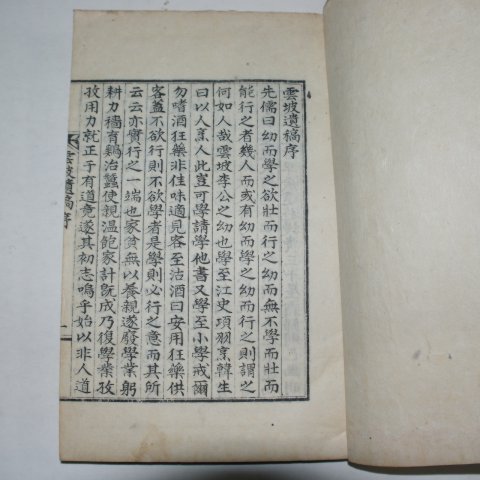 雲坡遺稿序
先儒曰幼而學之欲壯而行之幼而無不學而壯而
能行之者幾人而或有幼而學之幼而行之則謂之
何如人哉雲坡李公之幼也學至江史項羽烹韓生
曰以人烹人此豈可學請學他書又學至小學戒爾
勿嗜酒狂藥非佳味適見客至沽酒曰安用狂藥供
客盖不欲行則不欲學者是學則必行之意而其所
云云亦實行之一端也家貧無以養親遂廢學業躬
耕力穡育鷄治蠶使親溫飽家計旣成乃復學業孜
孜用力就正于有道竟遂其初志嗚乎始以非人道
雲坡遺稿序
一